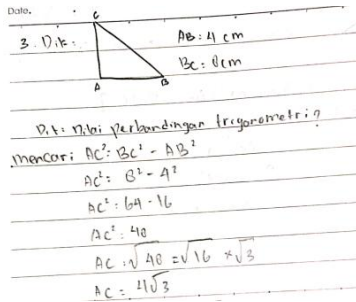 Date.
C
3. Dik:
AB: 4 cm
BC: 8cm
A
B
Dit: Nilai perbandingan trigonometri?
mencari AC²: BC² - AB²
AC²: 8² - 4²
AC²: 64 - 16
AC²: 48
AC: √48 = √16 × √3
AC = 4√3